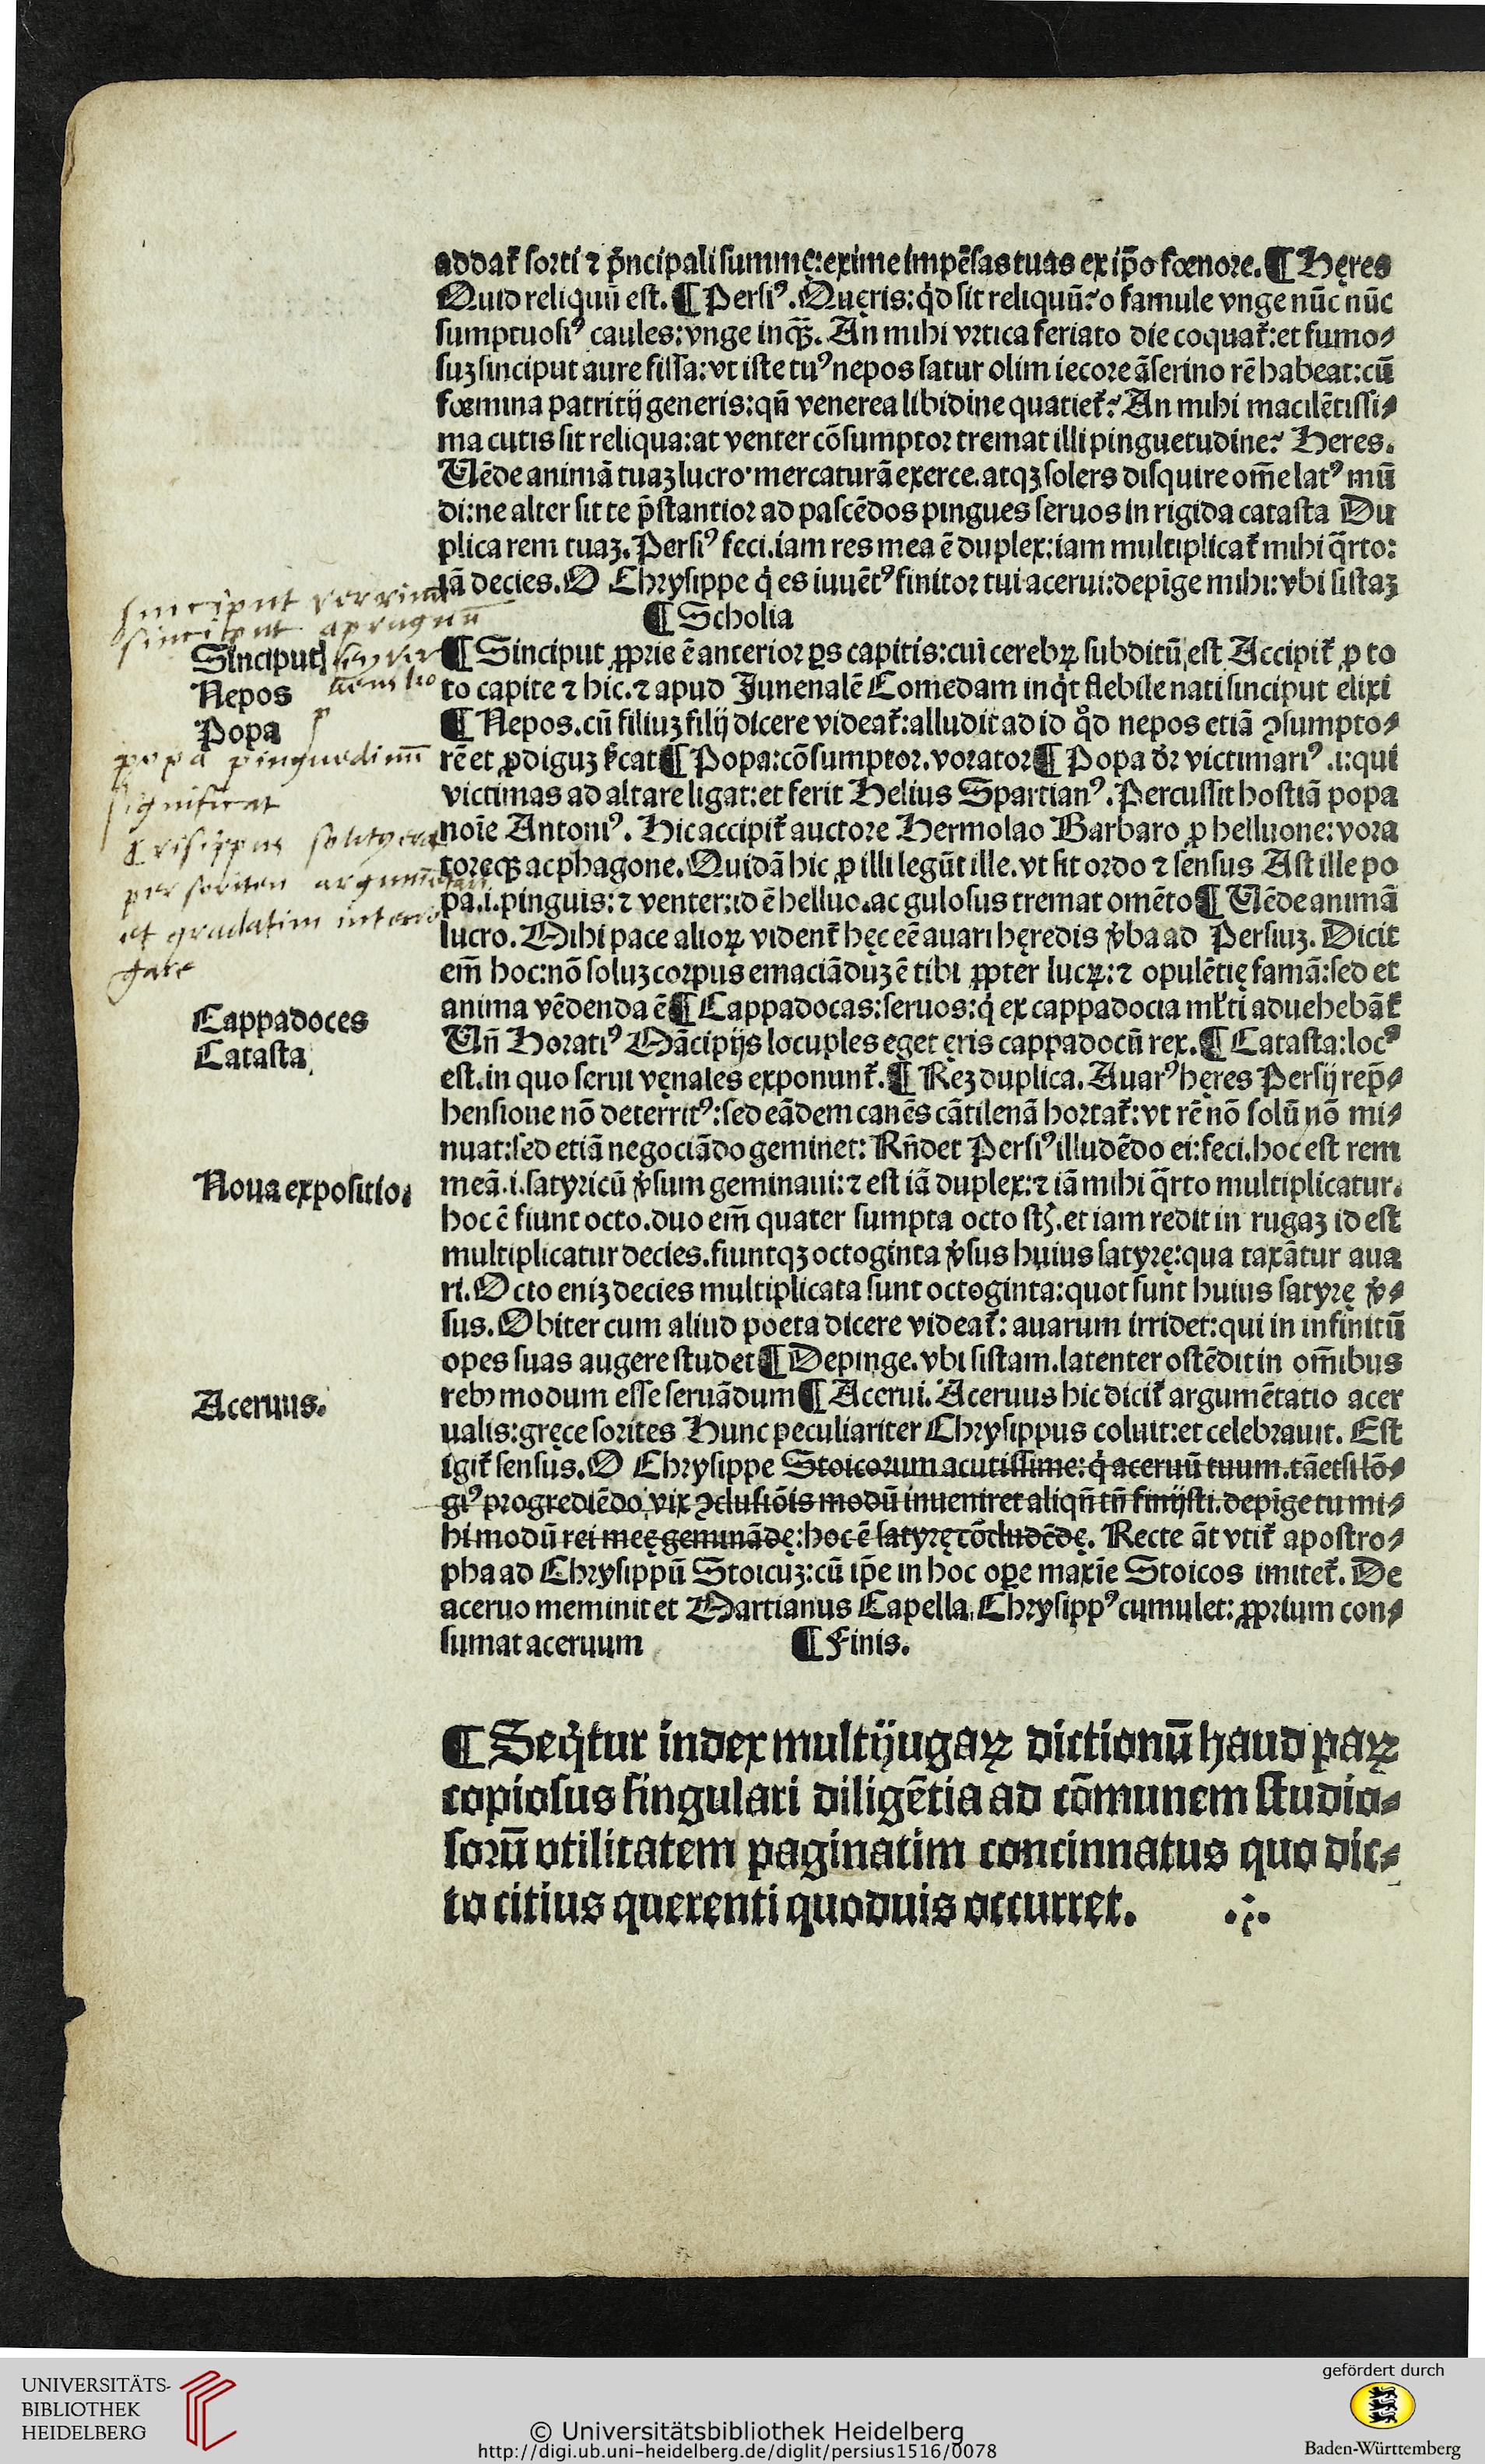 addat̃ sorti ⁊ pͥncipali summę:exime impẽsas tuas ex ip̃o fœnore. ¶ Hęres
Quid reliquũ est. ¶ Persiꝰ. Quęris: qͥd sit reliquũ? o famule vnge nũc nũc
sumptuosiꝰ caules: vnge inqȝ. An mihi vrtica feriato die coquat̃: et fumo⸗
suȝ sinciput aure fissa: vt iste tuꝰ nepos satur olim iecore ãserino rẽ habeat: cũ
fœmina patritij generis: qñ venerea libidine quatiet̃? An mihi macilẽtissi⸗
ma cutis sit reliqua: at venter cõsumptor tremat illi pinguetudine? Heres.
Uẽde animã tuaȝ lucro· mercaturã exerce. atqȝ solers disquire om̃e latꝰ mũ
di: ne alter sit te p̃stantior ad pascẽdos pingues seruos in rigida catasta Du
plica rem tuaȝ. Persiꝰ feci. iam res mea ẽ duplex: iam multiplicat̃ mihi q̃rto:
iã decies. O Chrysippe qͥ es iuuẽtꝰ finitor tui acerui: depĩge mihi: vbi sistaȝ
¶ Scholia
sinciput verrinu
sinciput aprugnũ
Sinciput
Nepos
Popa
¶ Sinciput ꝓprie ẽ anterior ꝑs capitis: cui cerebꝝ subditũ est Accipit̃ ꝓ to
to capite ⁊ hic. ⁊ apud Junenalẽ Comedam inqͥt flebile nati sinciput elixi
¶ Nepos. cũ filiuȝ filij dicere videat̃: alludit ad id qͦd nepos etiã ꝯsumpto⸗
rẽ et ꝓdiguȝ sͥcat ¶ Popa: cõsumptor. vorator ¶ Popa dr̃ victimariꝰ .i: qui
victimas ad altare ligat: et ferit Helius Spartianꝰ. Percussit hostiã popa
noĩe Antoniꝰ. Hic accipit̃ auctore Hermolao Barbaro ꝓ helluone: vora
toreqȝ ac phagone. Quidã hic ꝓ illi legũt ille. vt sit ordo ⁊ sensus Ast ille po
pa .i. pinguis: ⁊ venter: id ẽ helluo. ac gulosus tremat omẽto ¶ Uẽde animã
popa pinguedinũ
significat
Crisippus
per soriten
et gradatim interro
gare
lucro. Mihi pace alioꝝ vident̃ hęc eẽ auari hęredis v̾ba ad Persiuȝ. Dicit
em̃ hoc: nõ soluȝ corpus emaciãduȝ ẽ tibi ꝓpter lucꝝ: ⁊ opulẽtię famã: sed et
anima vẽdenda ẽ ¶ Cappadocas: seruos: qͥ ex cappadocia ml̃ti aduehebãt̃
Cappadoces
Catasta
Uñ Horatiꝰ Mãcipijs locuples eget ęris cappadocũ rex. ¶ Catasta: locꝰ
est. in quo serui vęnales exponunt̃. ¶ Reȝ duplica. Auarꝰ hęres Persij rep̃⸗
hensione nõ deterritꝰ: sed eãdem canẽs cãtilenã hortat̃: vt rẽ nõ solũ nõ mi⸗
nuat: sed etiã negociãdo geminet: Rñdet Persiꝰ illudẽdo ei: feci. hoc est rem
Noua expositio.
meã .i. satyricũ v̾sum geminaui: ⁊ est iã duplex: ⁊ iã mihi q̃rto multiplicatur.
hoc ẽ fiunt octo. duo em̃ quater sumpta octo st̃. et iam redit in rugaȝ id est
multiplicatur decies. fiuntqȝ octoginta v̾sus huius satyrę: qua taxãtur aua
ri. Octo eniȝ decies multiplicata sunt octoginta: quot sunt huius satyrę v̾⸗
sus. Obiter cum aliud poeta dicere videat̃: auarum irridet: qui in infinitũ
opes suas augere studet ¶ Depinge. vbi sistam. latenter ostẽdit in om̃ibus
Aceruus.
rebꝰ modum esse seruãdum ¶ Acerui. Aceruus hic dicit̃ argumẽtatio acer
ualis: gręce sorites Hunc peculiariter Chrysippus coluit: et celebrauit. Est
igit̃ sensus. O Chrysippe Stoicorum acutissime: qͥ aceruũ tuum. tãetsi lõ⸗
giꝰ progrediẽdo vix ꝯclusiõis modũ inueniret aliqñ tñ finijsti. depĩge tu mi⸗
hi modũ rei meę geminãdę: hoc ẽ satyrę cõcludẽdę. Recte ãt vtit̃ apostro⸗
pha ad Chrysippũ Stoicuȝ: cũ ip̃e in hoc oꝑe maxĩe Stoicos imitet̃. De
aceruo meminit et Martianus Capella, Chrysippꝰ cumulet: ꝓprium con⸗
sumat aceruum ¶ Finis.
¶ Seqͥtur index multijugaꝝ dictionũ haud paꝝ
copiosus singulari diligẽtia ad cõmunem studio⸗
sorũ vtilitatem paginatim concinnatus quo dic⸗
to citius querenti quoduis occurret.
UNIVERSITÄTS-
BIBLIOTHEK
HEIDELBERG
© Universitätsbibliothek Heidelberg
http://digi.ub.uni-heidelberg.de/diglit/persius1516/0078
gefördert durch
Baden-Württemberg